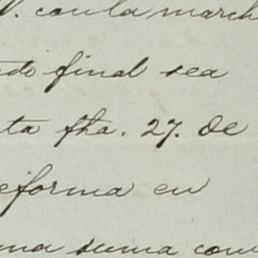 V. con la march
do final sea
ta fha. 27. de
eforma en
na suma com